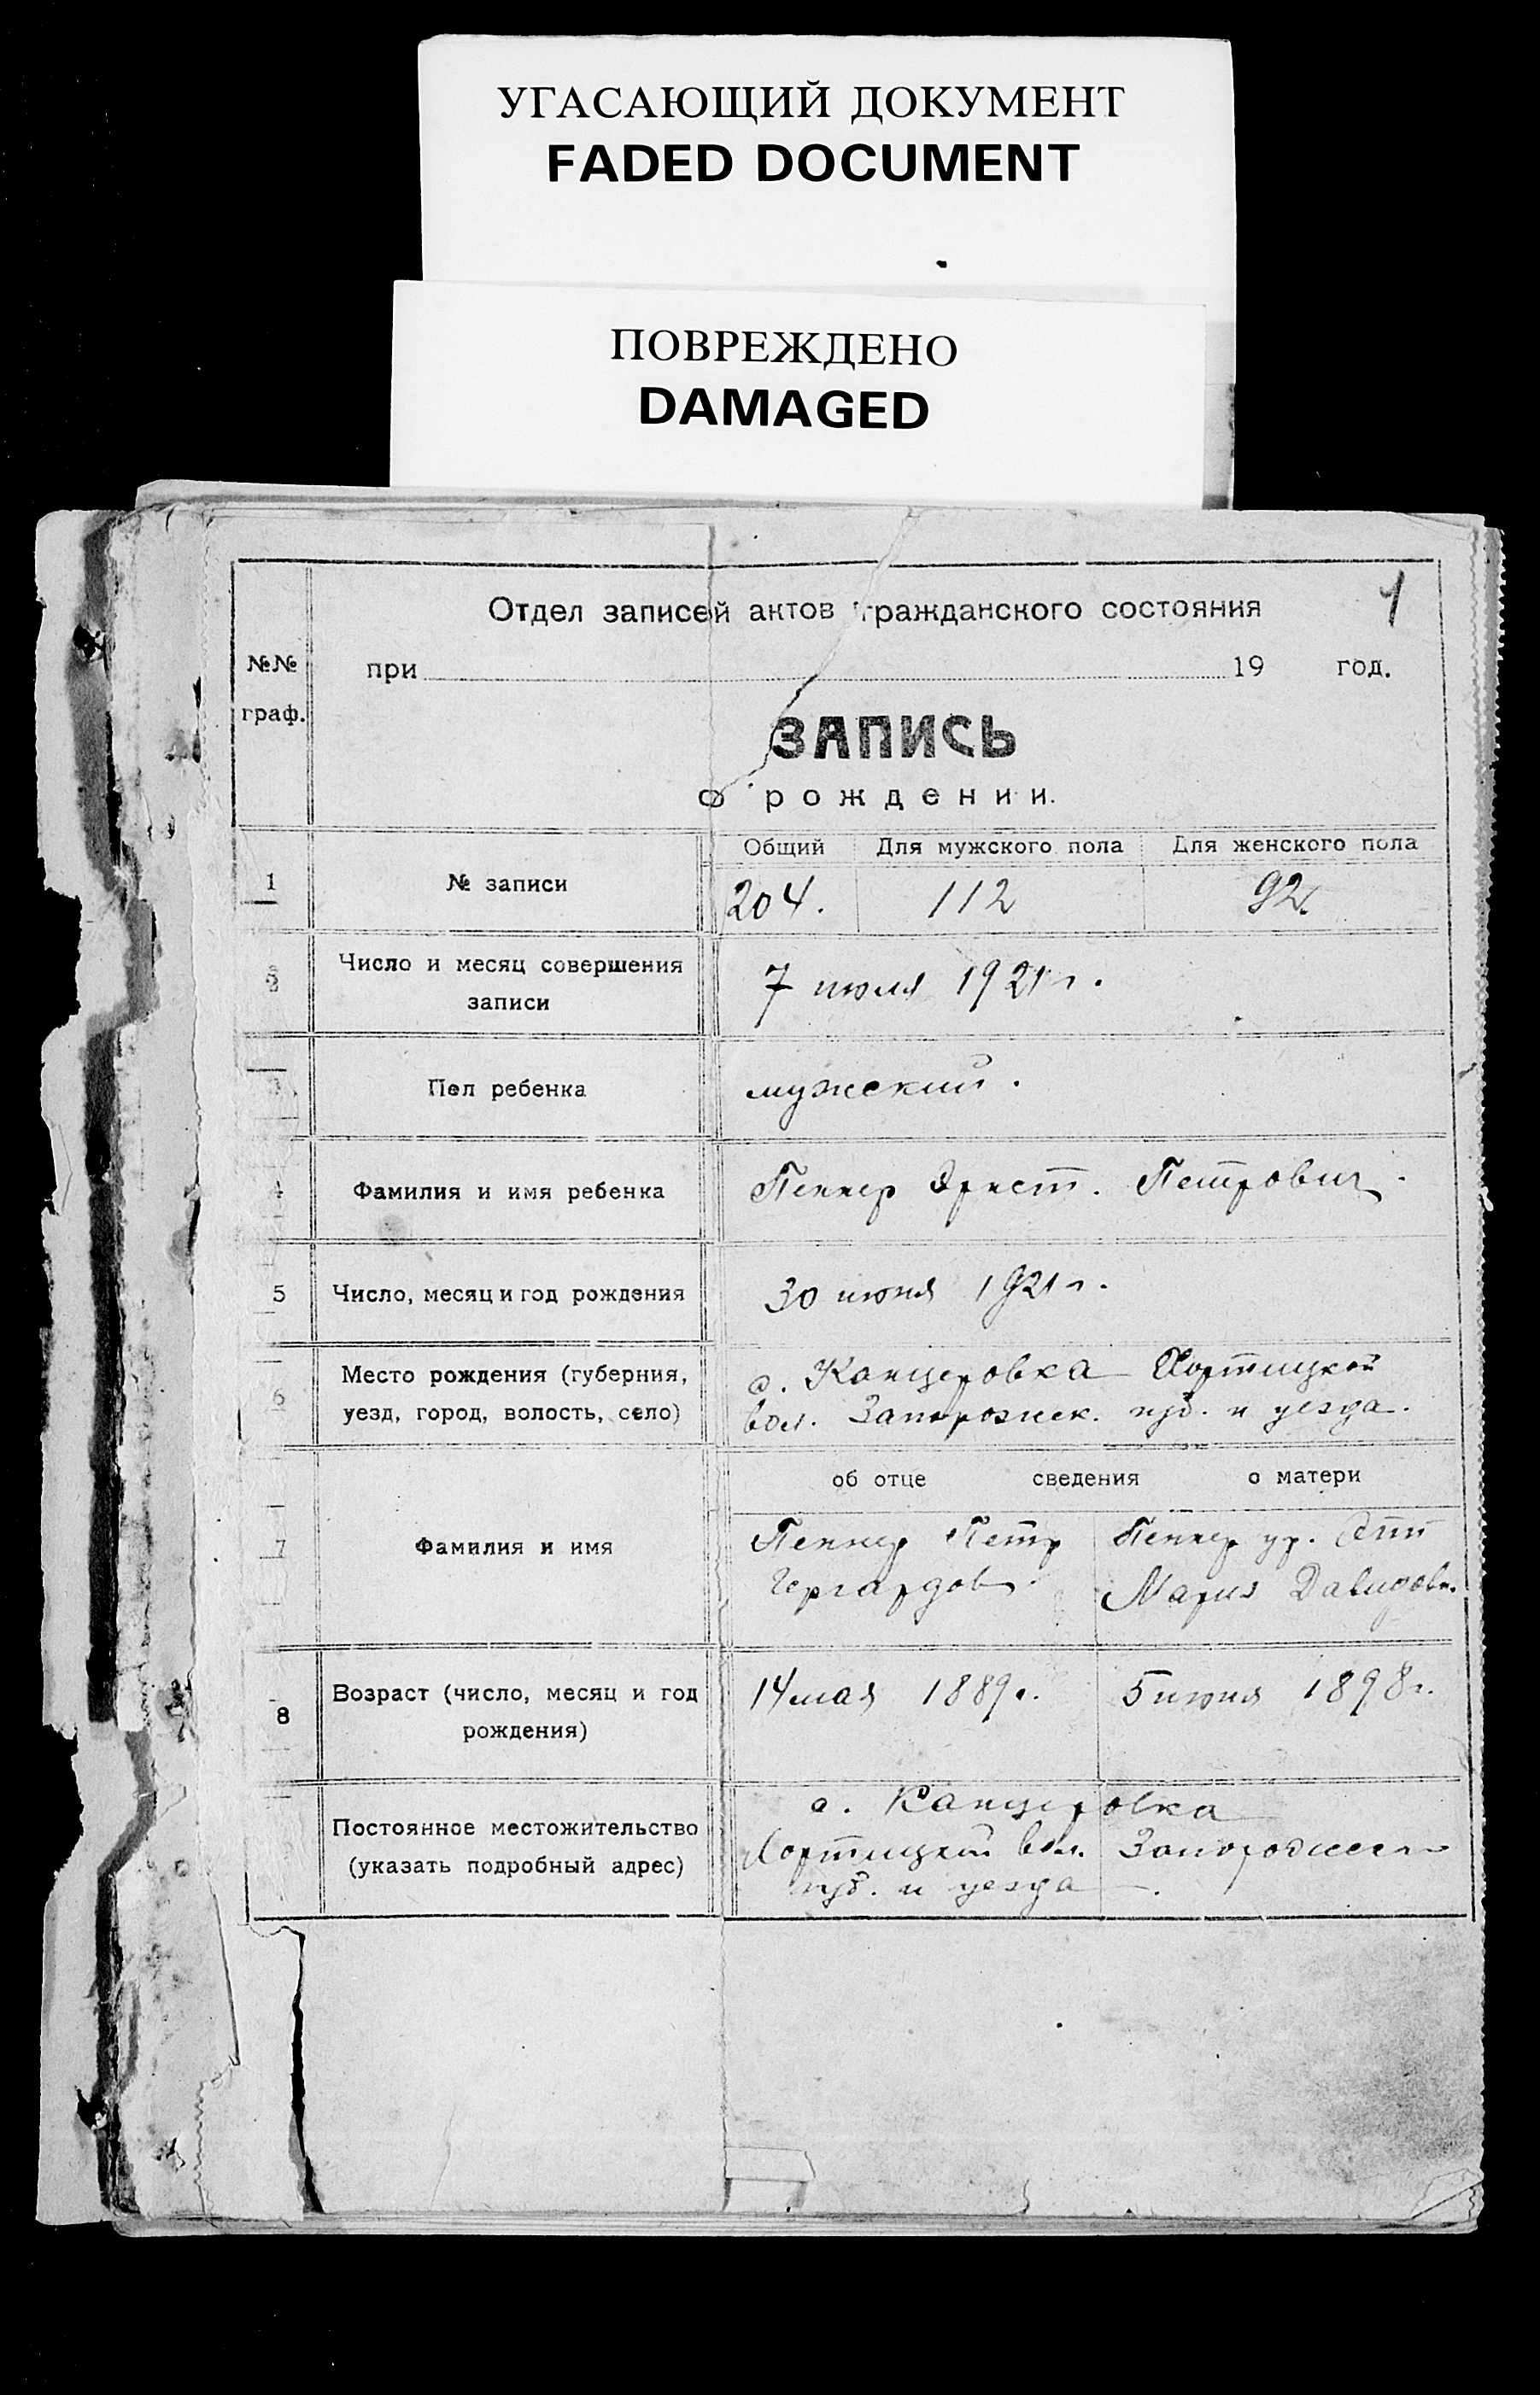 УГАСАЮЩИЙ ДОКУМЕНТ
FADED DOCUMENT
ПОВРЕЖДЕНО
DAMAGED
1
Отдел записей актов гражданского состояния
№№ граф.
при 19 год.
ЗАПИСЬ
о рождении.
Общий Для мужского пола Для женского пола
1 № записи 204. 112 92.
2 Число и месяц совершения
записи
7 июля 1921 г.
3 Пол ребенка мужский.
4 Фамилия и имя ребенка Пеннер Эрнст. Петрович.
5 Число, месяц и год рождения 30 июня 1921 г.
6 Место рождения (губерния,
уезд, город, волость, село)
с. Канцеровка Хортицкой
вол. Запорожск. губ. и уезда.
об отце сведения о матери
7 Фамилия и имя
Пеннер Петр
Гергардов.
Пеннер ур.
Мария Давидовн.
8 Возраст (число, месяц и год
рождения)
14 мая 1889 г. 5 июня 1898 г.
Постоянное местожительство
(указать подробный адрес)
с. Канцеровка
Хортицкой вол. Запорожской
губ. и уезда.